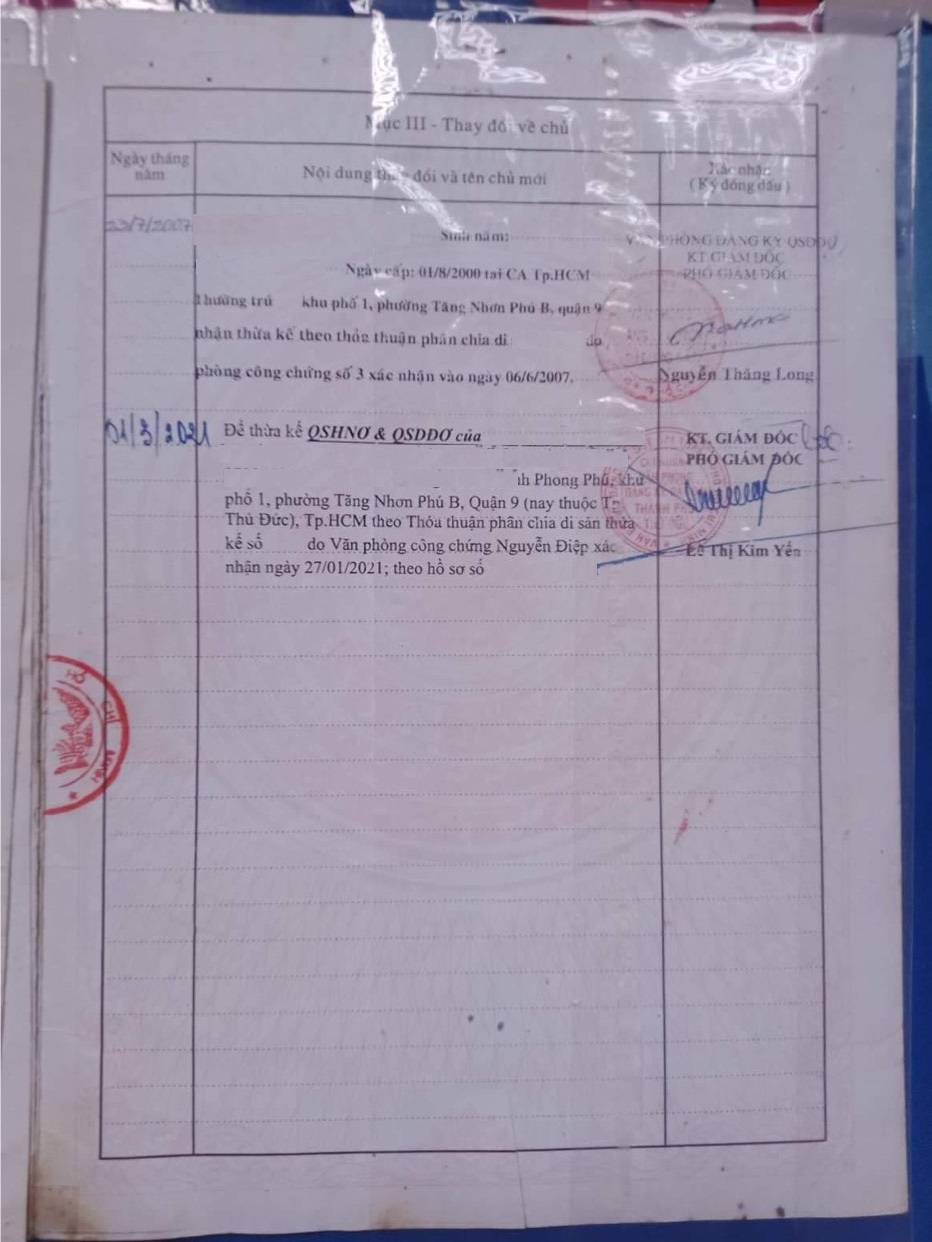 Mục III - Thay đổi về chủ
Ngày tháng năm
Nội dung thay đổi và tên chủ mới
Xác nhận
( Ký đóng dấu )
23/7/2007
Sinh năm:
Ngày cấp: 01/8/2000 tại CA Tp.HCM
Thường trú khu phố 1, phường Tăng Nhơn Phú B, quận 9
nhận thừa kế theo thỏa thuận phân chia di do
phòng công chứng số 3 xác nhận vào ngày 06/6/2007.
VĂN PHÒNG ĐĂNG KÝ QSDĐ
KT GIÁM ĐỐC
PHÓ GIÁM ĐỐC
Nguyễn Thăng Long
01/3/2021
Để thừa kế QSHNƠ & QSDĐƠ của
Phong Phú, khu
phố 1, phường Tăng Nhơn Phú B, Quận 9 (nay thuộc Tp
Thủ Đức), Tp.HCM theo Thỏa thuận phân chia di sản thừa
kế số do Văn phòng công chứng Nguyễn Điệp xác
nhận ngày 27/01/2021; theo hồ sơ số
KT. GIÁM ĐỐC
PHÓ GIÁM ĐỐC
Lê Thị Kim Yến
HỒ CHÍ MINH